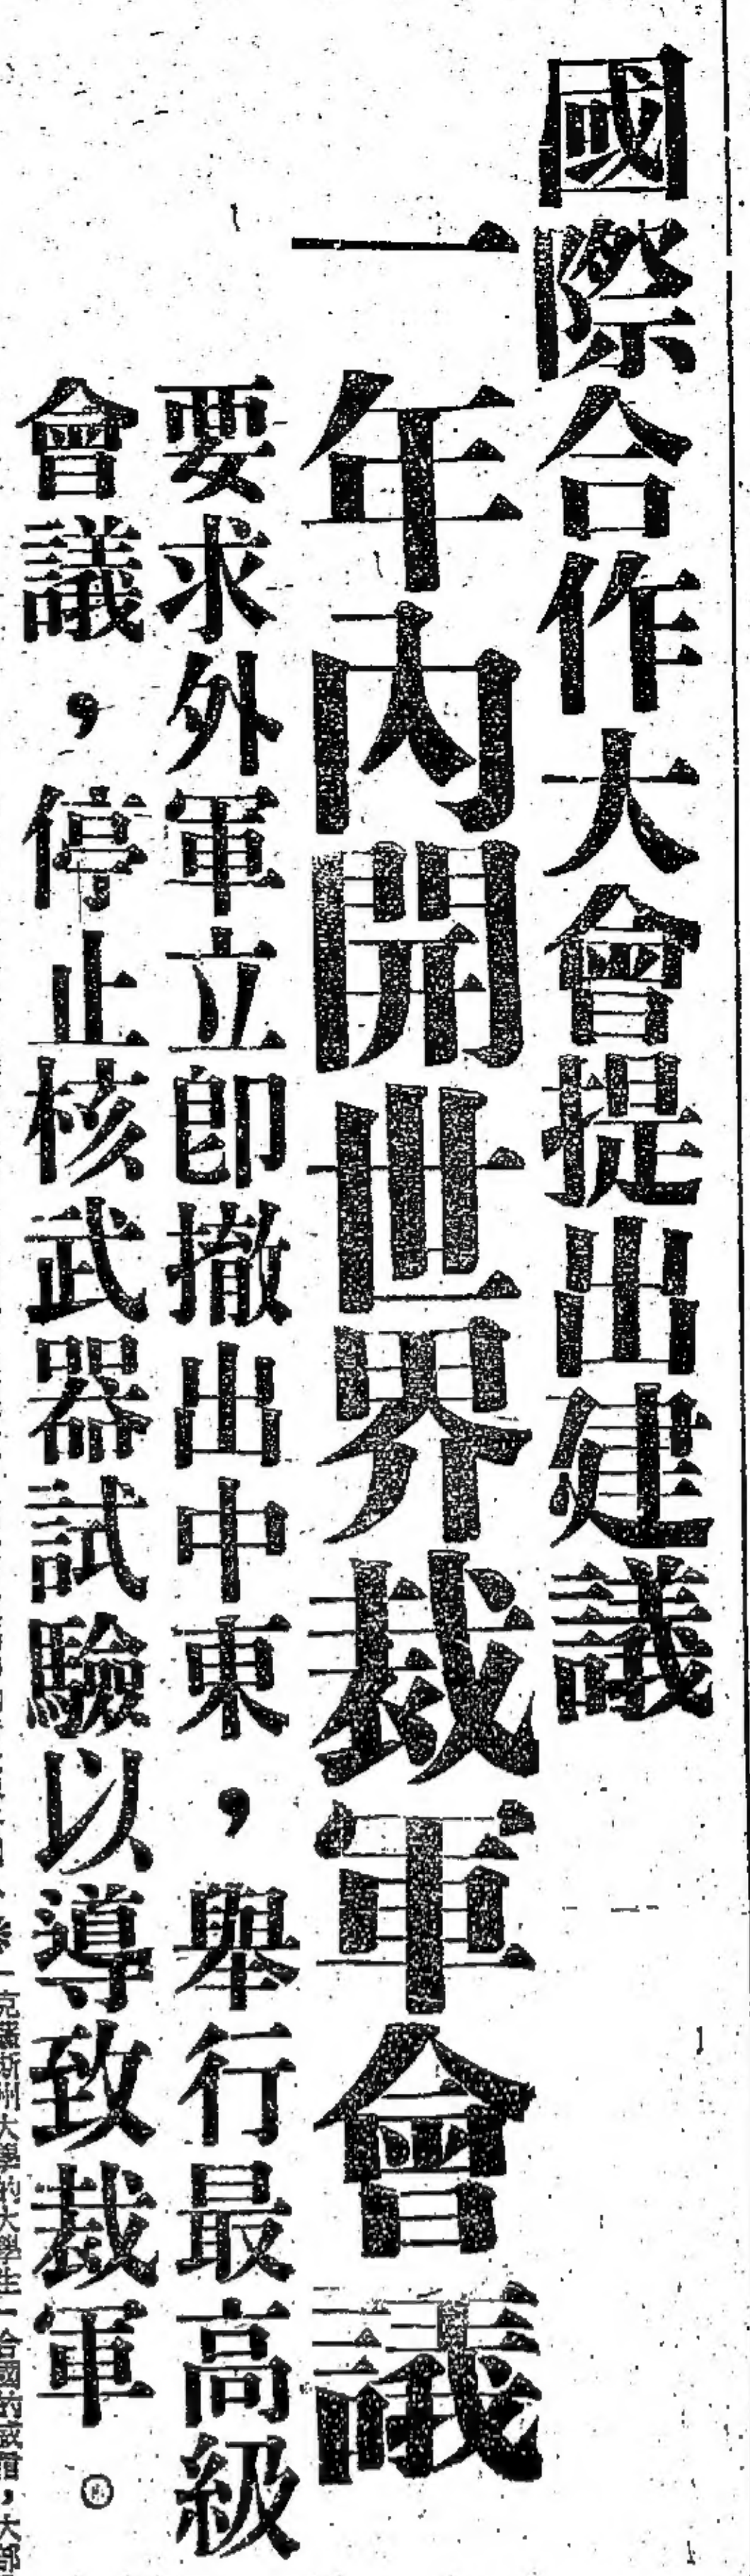 國際合作大會提出建議
一年內開世界裁軍會議
要求外軍立即撤出中東，舉行最高級
會議，停止核武器試驗以導致裁軍。